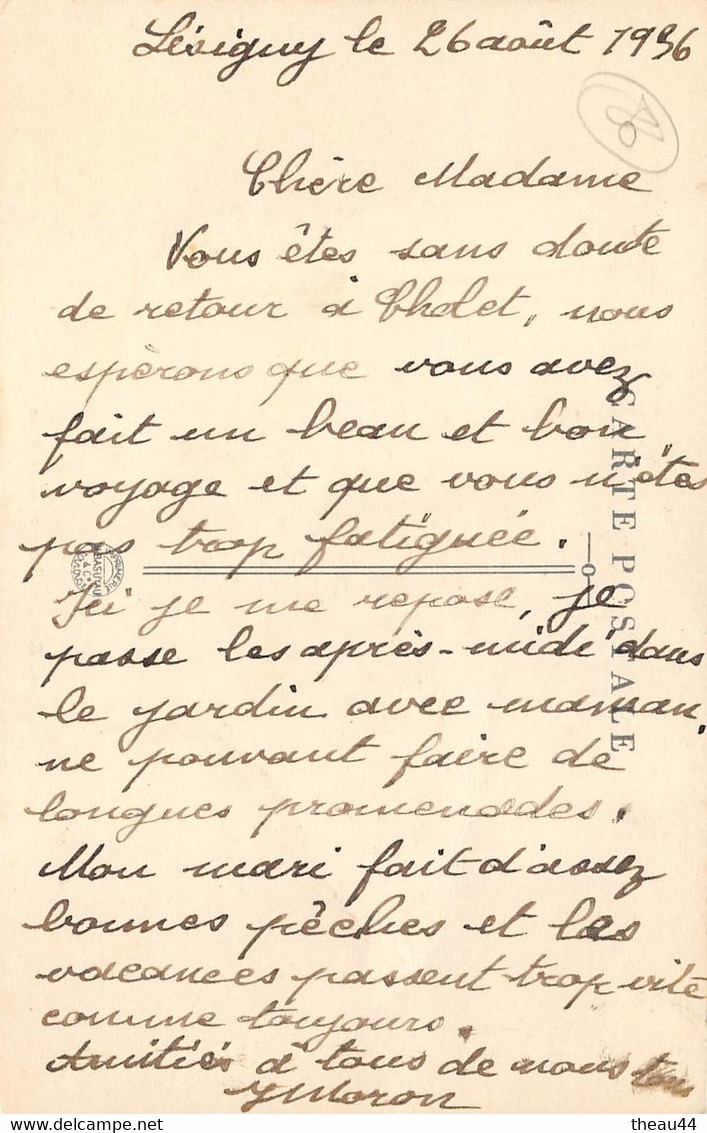 Lésigny le 26 août 1936
80
Chère Madame
Vous êtes sans doute
de retour à Cholet, nous
espérons que vous avez
fait un beau et bon
voyage et que vous n'êtes
pas trop fatiguée.
Ici je me repose, je
passe les après-midi dans
le jardin avec maman,
ne pouvant faire de
longues promenades.
Mon mari fait d'assez
bonnes pêches et les
vacances passent trop vite
comme toujours.
Amitiés à tous de nous tous
YMoron
CARTE POSTALE
theau44